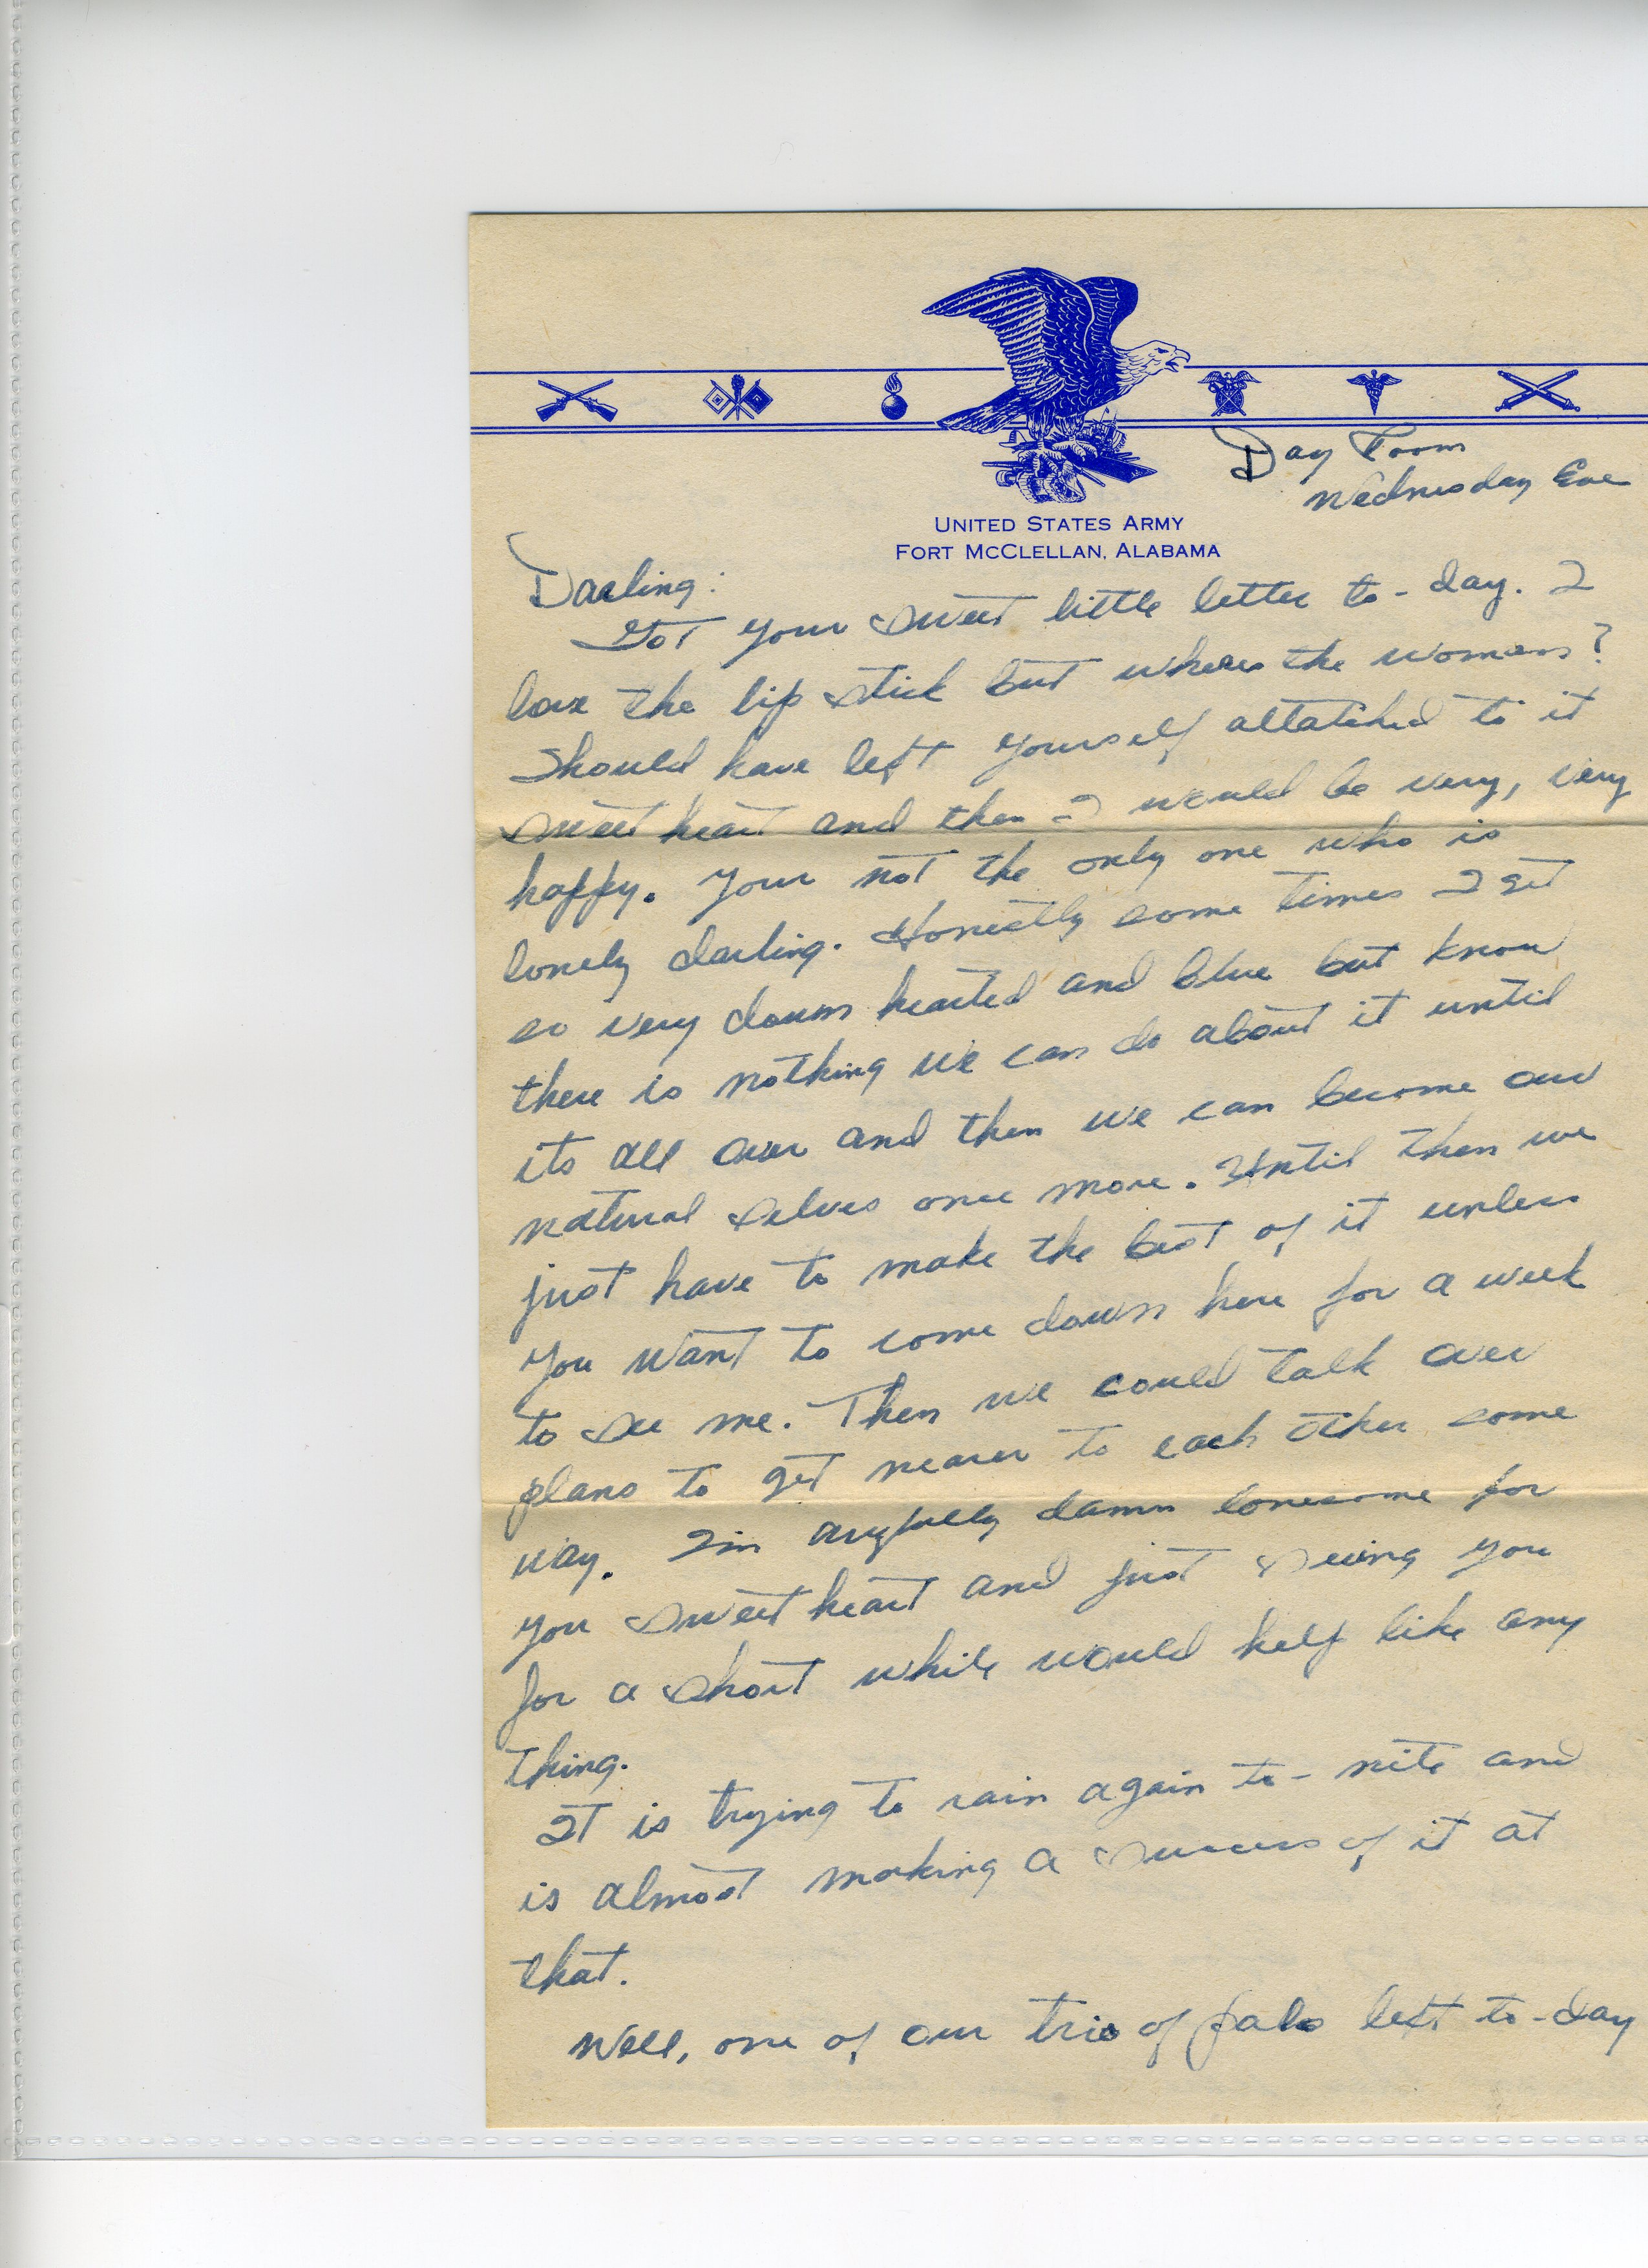 Day Room
Wednesday Eve
UNITED STATES ARMY
FORT MCCLELLAN, ALABAMA
Darling:
Got your sweet little letter to-day. I
love the lip stick but wheres the womans?
Should have left yourself attatched to it
sweet heart and then I would be very, very
happy. Your not the only one who is
lonely darling. Honestly some times I get
so very down hearted and blue but know
there is nothing we can do about it until
its all over and then we can become our
natural selves once more. Until then we
just have to make the best of it unless
you want to come down here for a week
to see me. Then we could talk over
plans to get nearer to each other some
way. Im awfully damn lonesome for
you sweet heart and just seeing you
for a short while would help like any
thing.
It is trying to rain again to-nite and
is almost making a success of it at
that.
Well, one of our trio of pals left to-day